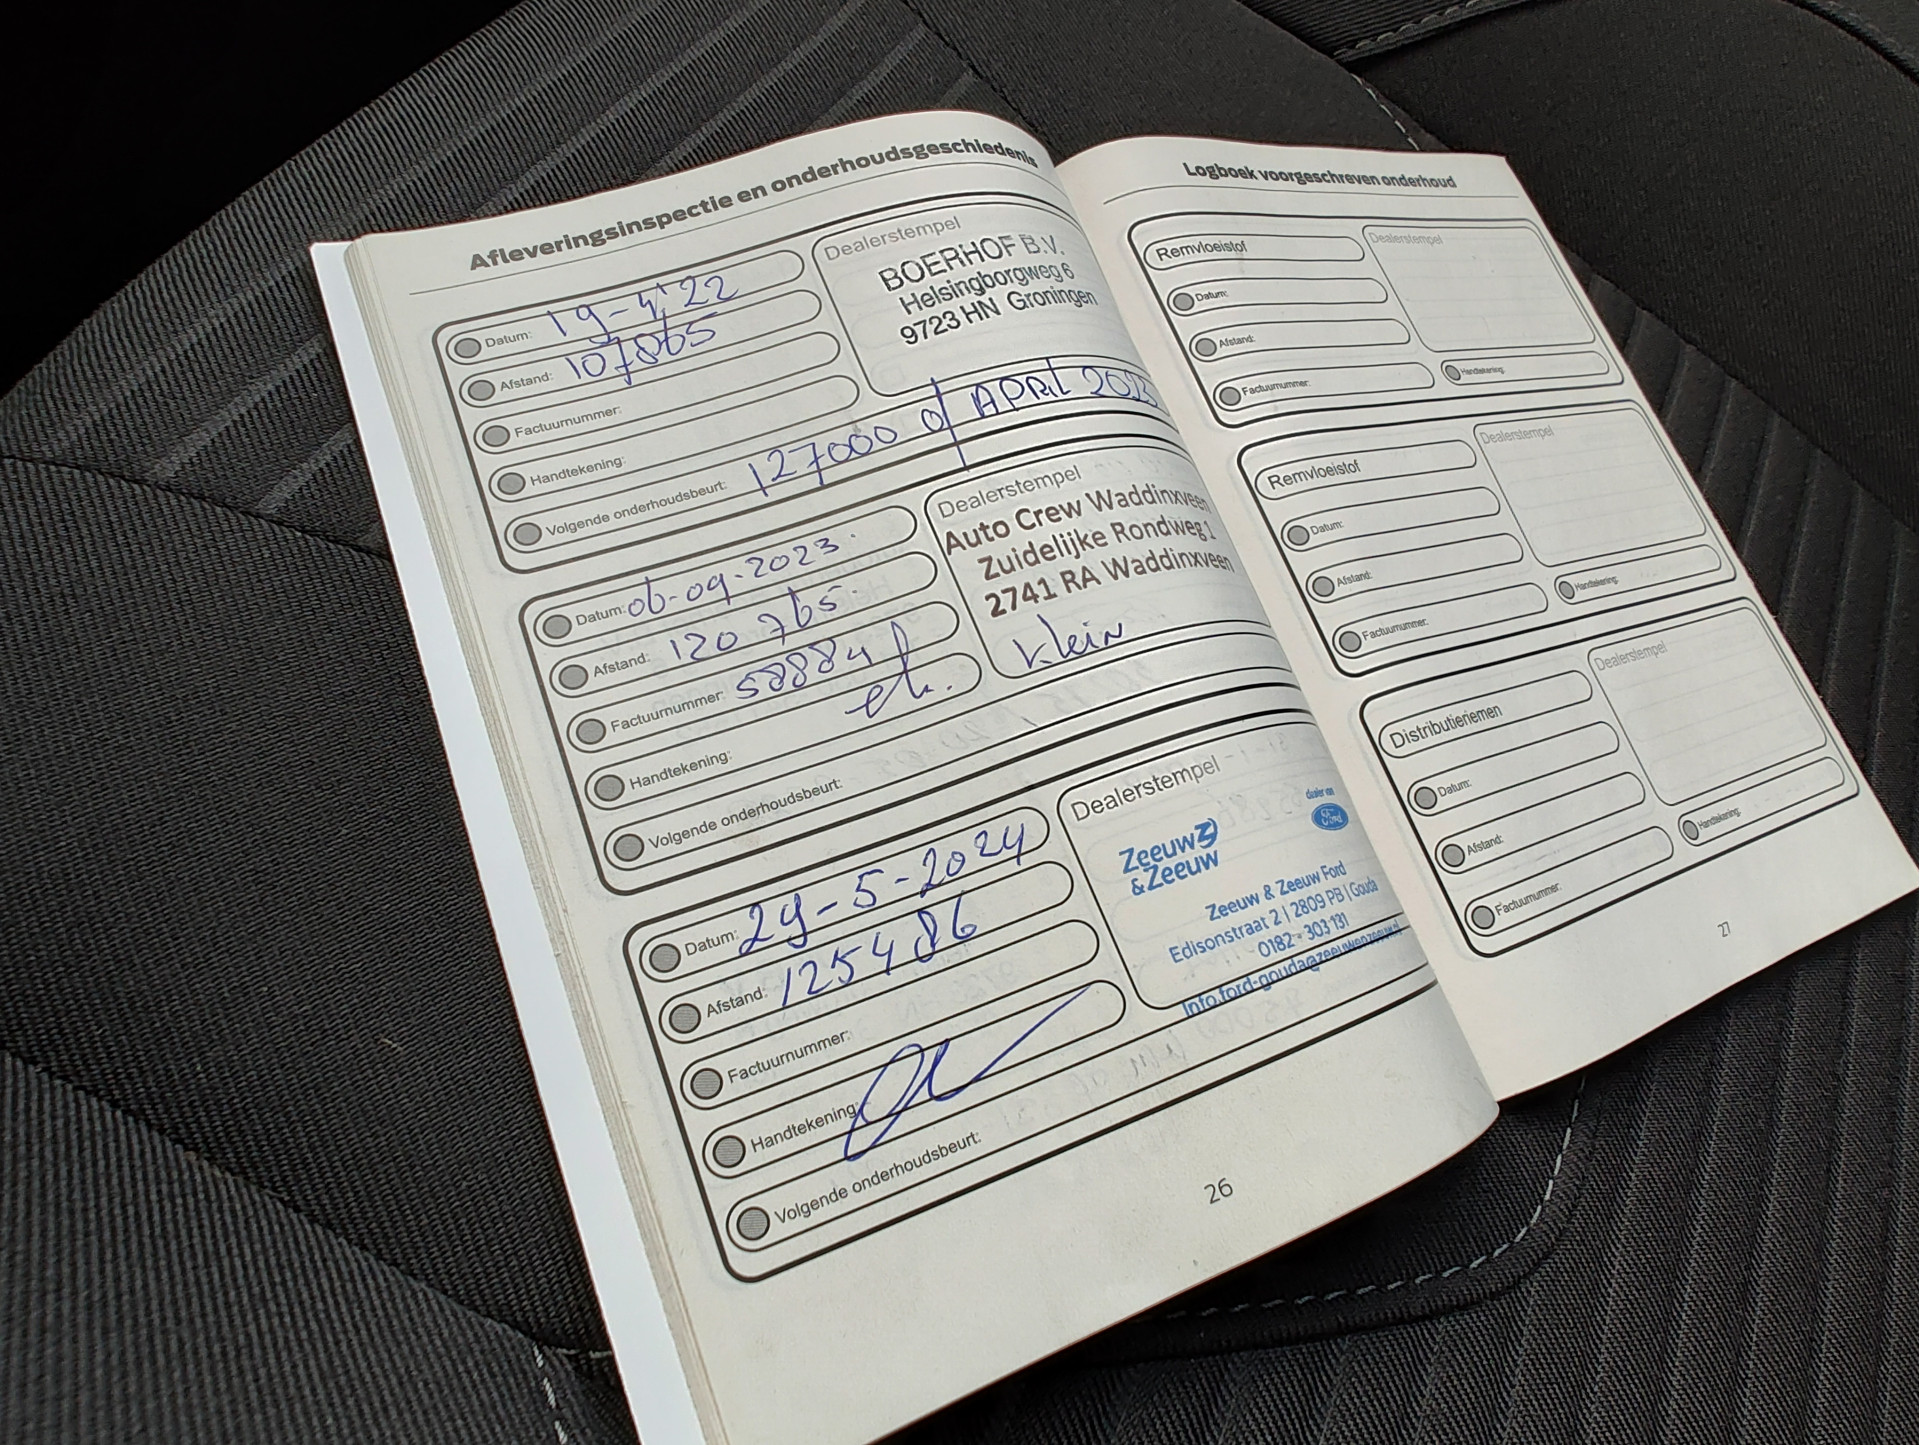 Afleveringsinspectie en onderhoudsgeschiedenis
Datum: 19-4'22
Afstand: 107865
Factuurnummer:
Handtekening:
Volgende onderhoudsbeurt: 127000 of APRIL 2023
Dealerstempel
BOERHOF B.V.
Helsingborgweg 6
9723 HN Groningen
Datum: 06-09-2023.
Afstand: 120765.
Factuurnummer: 58884
Handtekening:
Volgende onderhoudsbeurt:
Dealerstempel
Auto Crew Waddinxveen
Zuidelijke Rondweg 1
2741 RA Waddinxveen
Klein
Datum: 29-5-2024
Afstand: 125486
Factuurnummer:
Handtekening:
Volgende onderhoudsbeurt:
Dealerstempel
dealer van
Ford
Zeeuw
& Zeeuw
Zeeuw & Zeeuw Ford
Edisonstraat 2 | 2809 PB | Gouda
0182 - 303 131
info.ford-gouda@zeeuwenzeeuw.nl
26
Logboek voorgeschreven onderhoud
Remvloeistof
Datum:
Afstand:
Factuurnummer:
Dealerstempel
Handtekening:
Remvloeistof
Datum:
Afstand:
Factuurnummer:
Dealerstempel
Handtekening:
Distributieriemen
Datum:
Afstand:
Factuurnummer:
Dealerstempel
Handtekening:
27